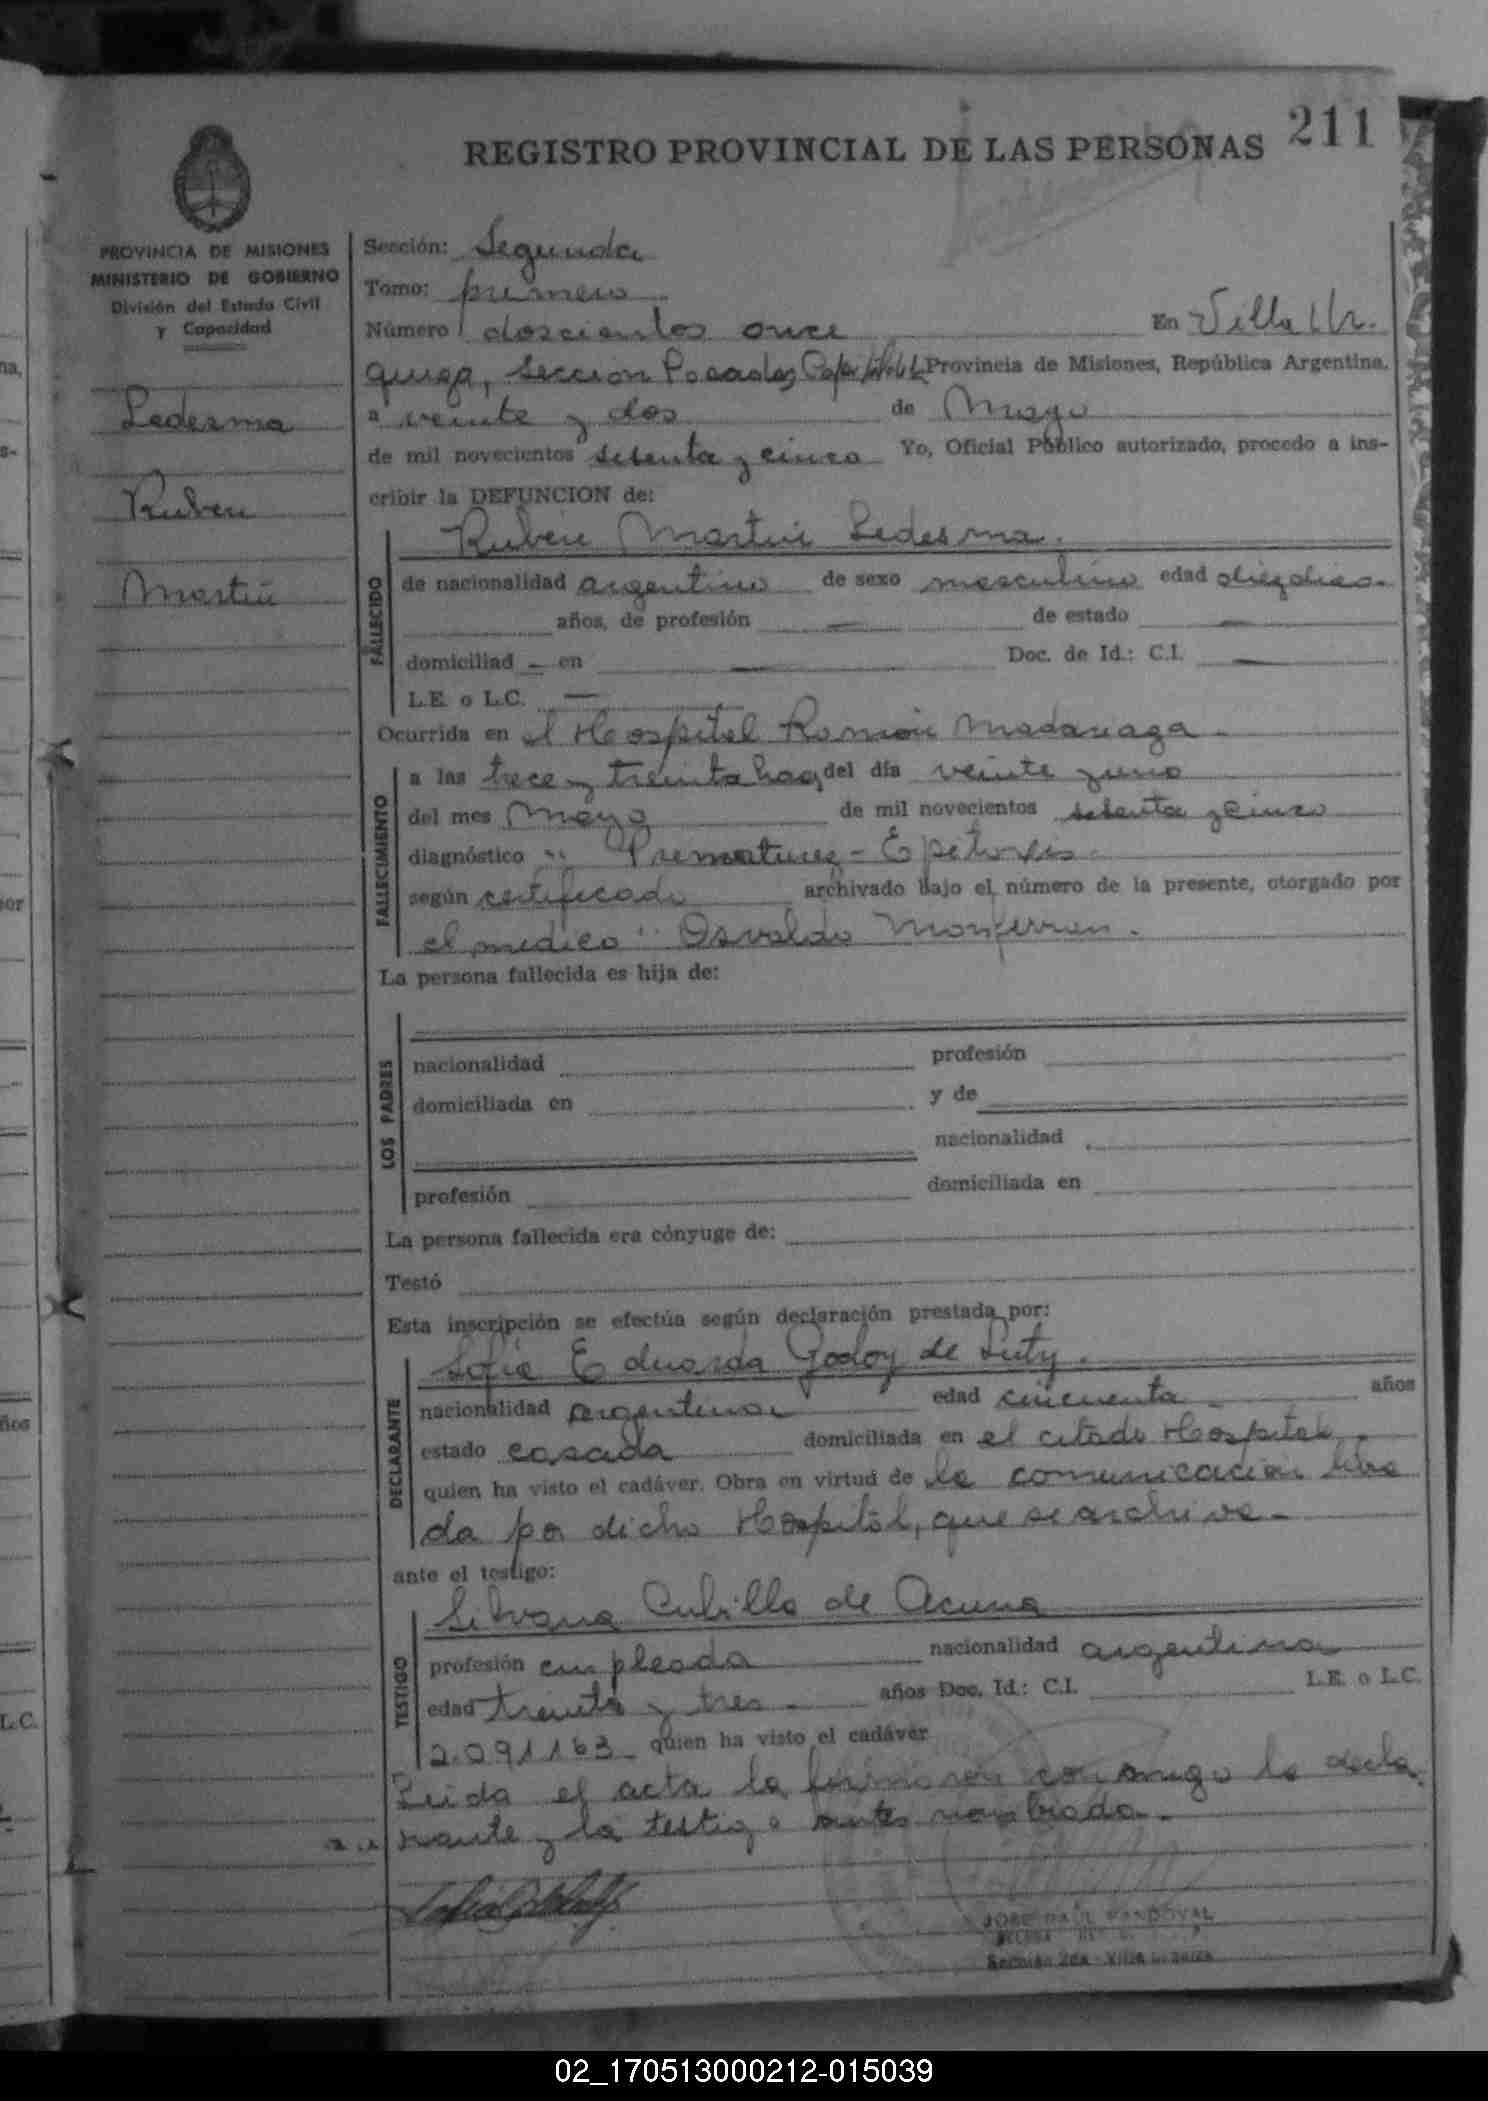 211
REGISTRO PROVINCIAL DE LAS PERSONAS
PROVINCIA DE MISIONES
MINISTERIO DE GOBIERNO
División del Estado Civil
y Capacidad
Ledesma
Ruben
Martin
Sección: Segunda
Tomo: primero
Número doscientos once En Villa Ur-
quiza, Seccion Posadas, Provincia de Misiones, República Argentina,
a veinte y dos de Mayo
de mil novecientos setenta y cinco Yo, Oficial Público autorizado, procedo a ins-
cribir la DEFUNCION de:
Rubén Martin Ledesma.
FALLECIDO
de nacionalidad argentino de sexo masculino edad diez dias-
años, de profesión — de estado —
domiciliad — en — Doc. de Id.: C.I. —
L.E. o L.C. —
Ocurrida en el Hospital Ramón Madariaga -
FALLECIMIENTO
a las trece y treinta horas, del día veinte y uno
del mes Mayo de mil novecientos setenta y cinco
diagnóstico " Prematurez -
según certificado archivado bajo el número de la presente, otorgado por
el medico " Osvaldo Monferran -
La persona fallecida es hija de:
LOS PADRES
nacionalidad profesión
domiciliada en y de
nacionalidad
profesión domiciliada en
La persona fallecida era cónyuge de:
Testó
Esta inscripción se efectúa según declaración prestada por:
DECLARANTE
Sofia Eduarda Godoy de Luty.
nacionalidad argentina edad cincuenta - años
estado casada domiciliada en el citado Hospital -
quien ha visto el cadáver. Obra en virtud de la comunicación libra
da por dicho Hospital, que se archiva -
ante el testigo:
TESTIGO
Silvana Cubilla de Acuna
profesión empleada nacionalidad argentina
edad treinta y tres - años Doc. Id.: C.I. L.E. o L.C.
2.091163 - quien ha visto el cadáver
Leida el acta la firmaron conmigo la decla
rante y la testigo antes nombrada -
JOSE RAUL SANDOVAL
Sección 2da - Villa Urquiza
02_170513000212-015039